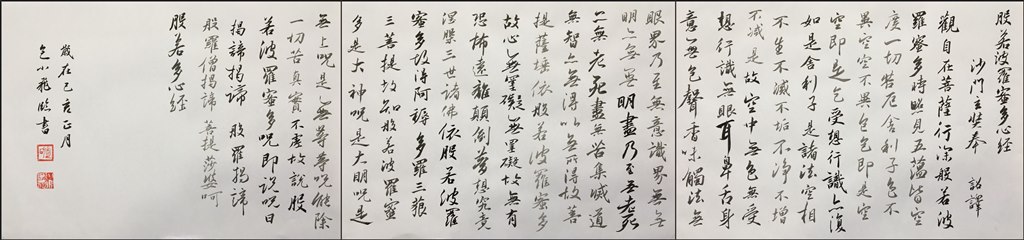 般若波羅蜜多心経
沙門玄奘奉 詔譯
觀自在菩薩行深般若波
羅蜜多時照見五蘊皆空
度一切苦厄舍利子色不
異空空不異色色即是空
空即是色受想行識亦復
如是舍利子是諸法空相
不生不滅不垢不淨不增
不減是故空中無色無受
想行識無眼耳鼻舌身
意無色聲香味觸法無
眼界乃至無意識界無無
明亦無無明盡乃至無老死
亦無老死盡無苦集滅道
無智亦無得以無所得故菩
提薩埵依般若波羅蜜多
故心無罣礙無罣礙故無有
恐怖遠離顛倒夢想究竟
涅槃三世諸佛依般若波羅
蜜多故得阿耨多羅三藐
三菩提故知般若波羅蜜
多是大神呪是大明呪是
無上呪是無等等呪能除
一切苦真實不虛故說般
若波羅蜜多呪即說呪曰
揭諦揭諦 般羅揭諦
般羅僧揭諦 菩提莎婆呵
般若多心経
歲在己亥正月
小飛臨書